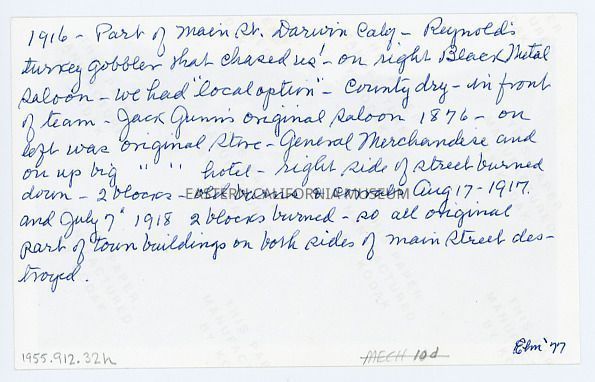 1916 - Part of Main St. Darwin Calif - Reynold's
turkey gobbler that chased us! - on right Black Metal
saloon - we had "local option" - County dry - in front
of team - Jack Gunn's original saloon 1876 - on
left was original store - General Merchandise and
on up big " " hotel - right side of street burned
down - 2 blocks - Aug 17 - 1917.
EASTERN CALIFORNIA MUSEUM
and July 7" 1918 2 blocks burned - so all original
part of town buildings on both sides of main street des-
troyed.
1955.912.32h
MECH 10d
Ebm '77